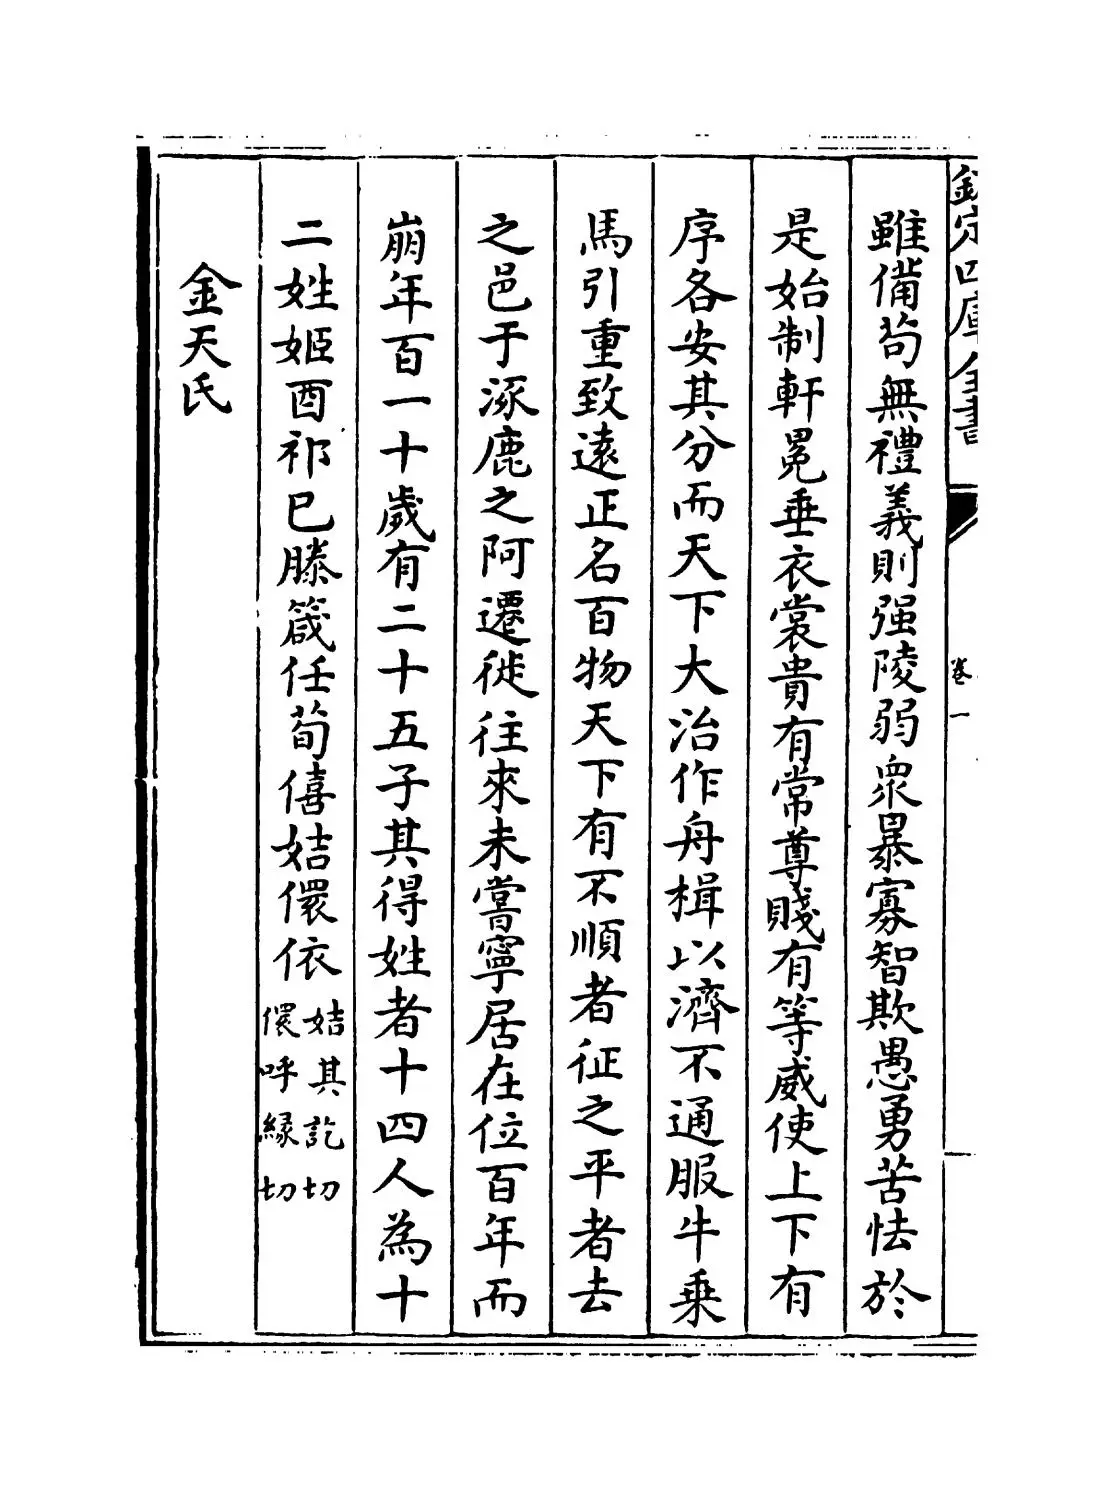 欽定四庫全書
卷一
雖備苟無禮義則强陵弱衆暴寡智欺愚勇苦怯於
是始制軒冕垂衣裳貴有常尊賤有等威使上下有
序各安其分而天下大治作舟楫以濟不通服牛乗
馬引重致逺正名百物天下有不順者征之平者去
之邑于涿鹿之阿遷徙往來未嘗寧居在位百年而
崩年百一十歲有二十五子其得姓者十四人為十
二姓姬酉祁已滕箴任荀僖姞儇依姞其訖切儇呼縁切
金天氏